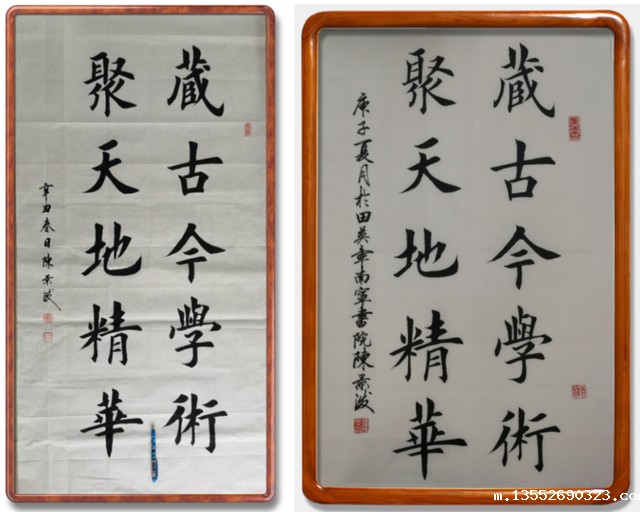 藏古今學術
聚天地精華
辛丑春日陳景波
藏古今學術
聚天地精華
庚子夏月於田英章南寧書院陳景波
m.13552690323.co